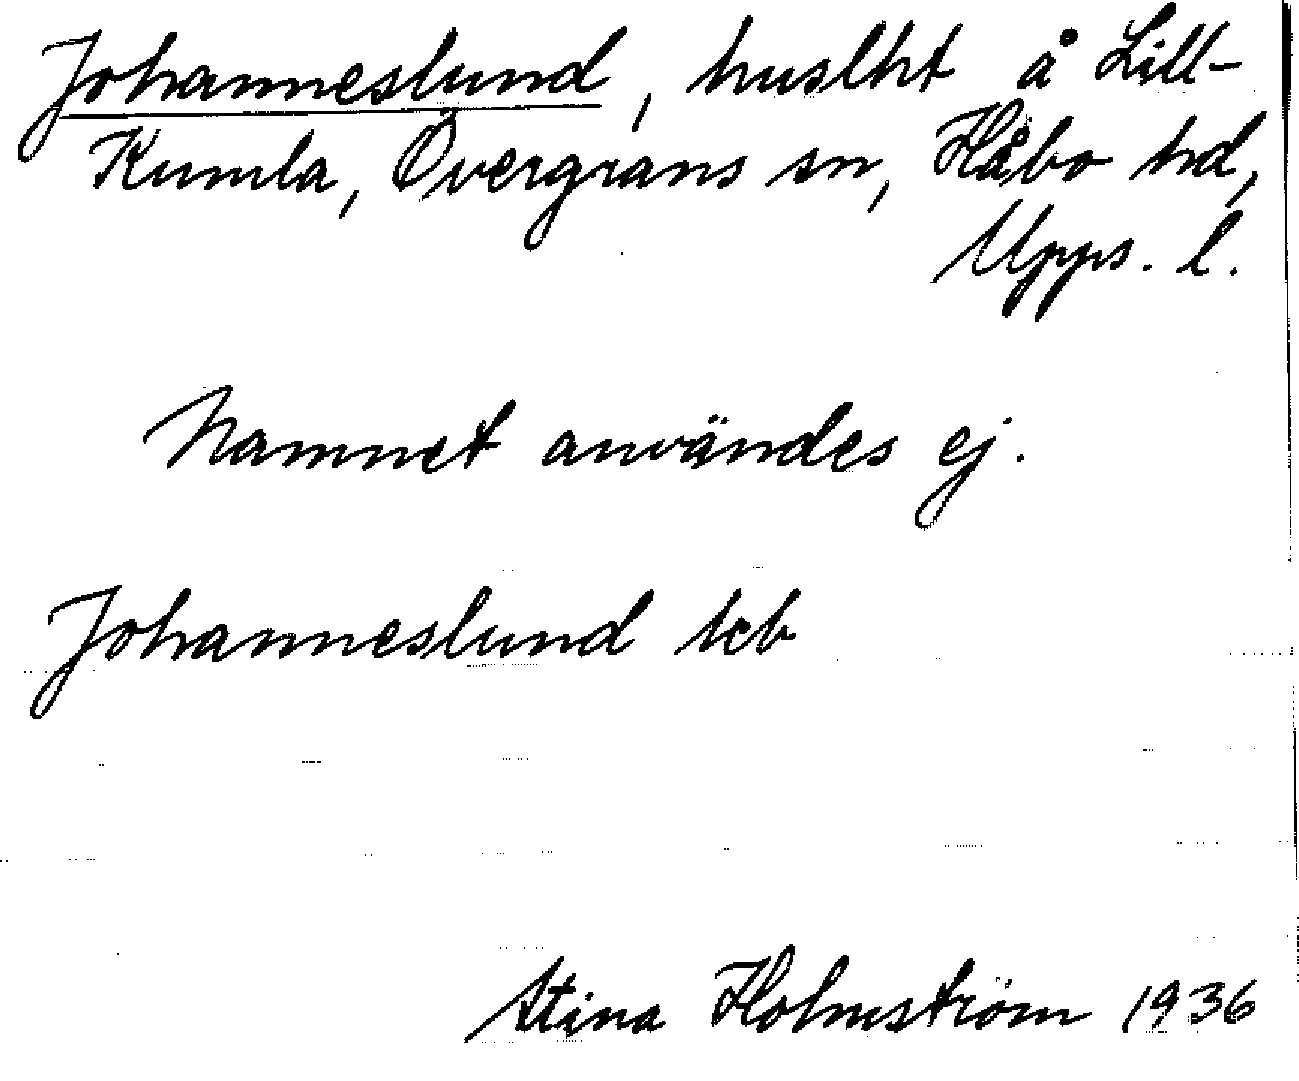 Johanneslund, huslht å Lill-
Kumla, Övergrans sn, Håbo hd,
Upps. l.
Namnet användes ej.
Johanneslund
Stina Holmström 1936